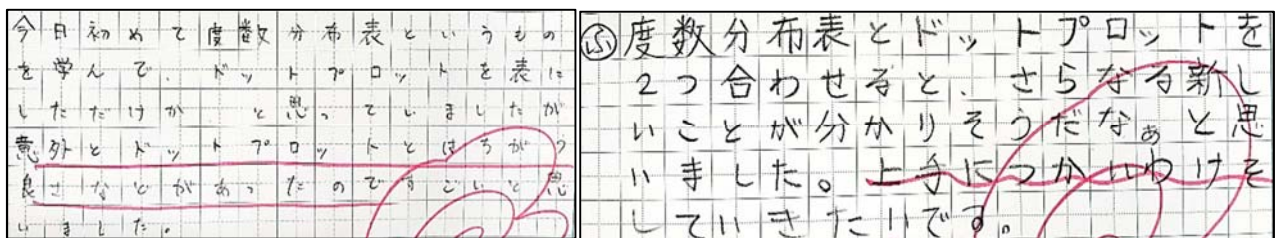 今日初めて度数分布表というもの
を学んで、ドットプロットを表に
しただけか、と思っていましたが
意外とドットプロットとはちがう
良さなどがあったのですごいと思
いました。
ふ度数分布表とドットプロットを
2つ合わせると、さらなる新し
いことが分かりそうだなぁと思
いました。上手につかいわけを
していきたいです。